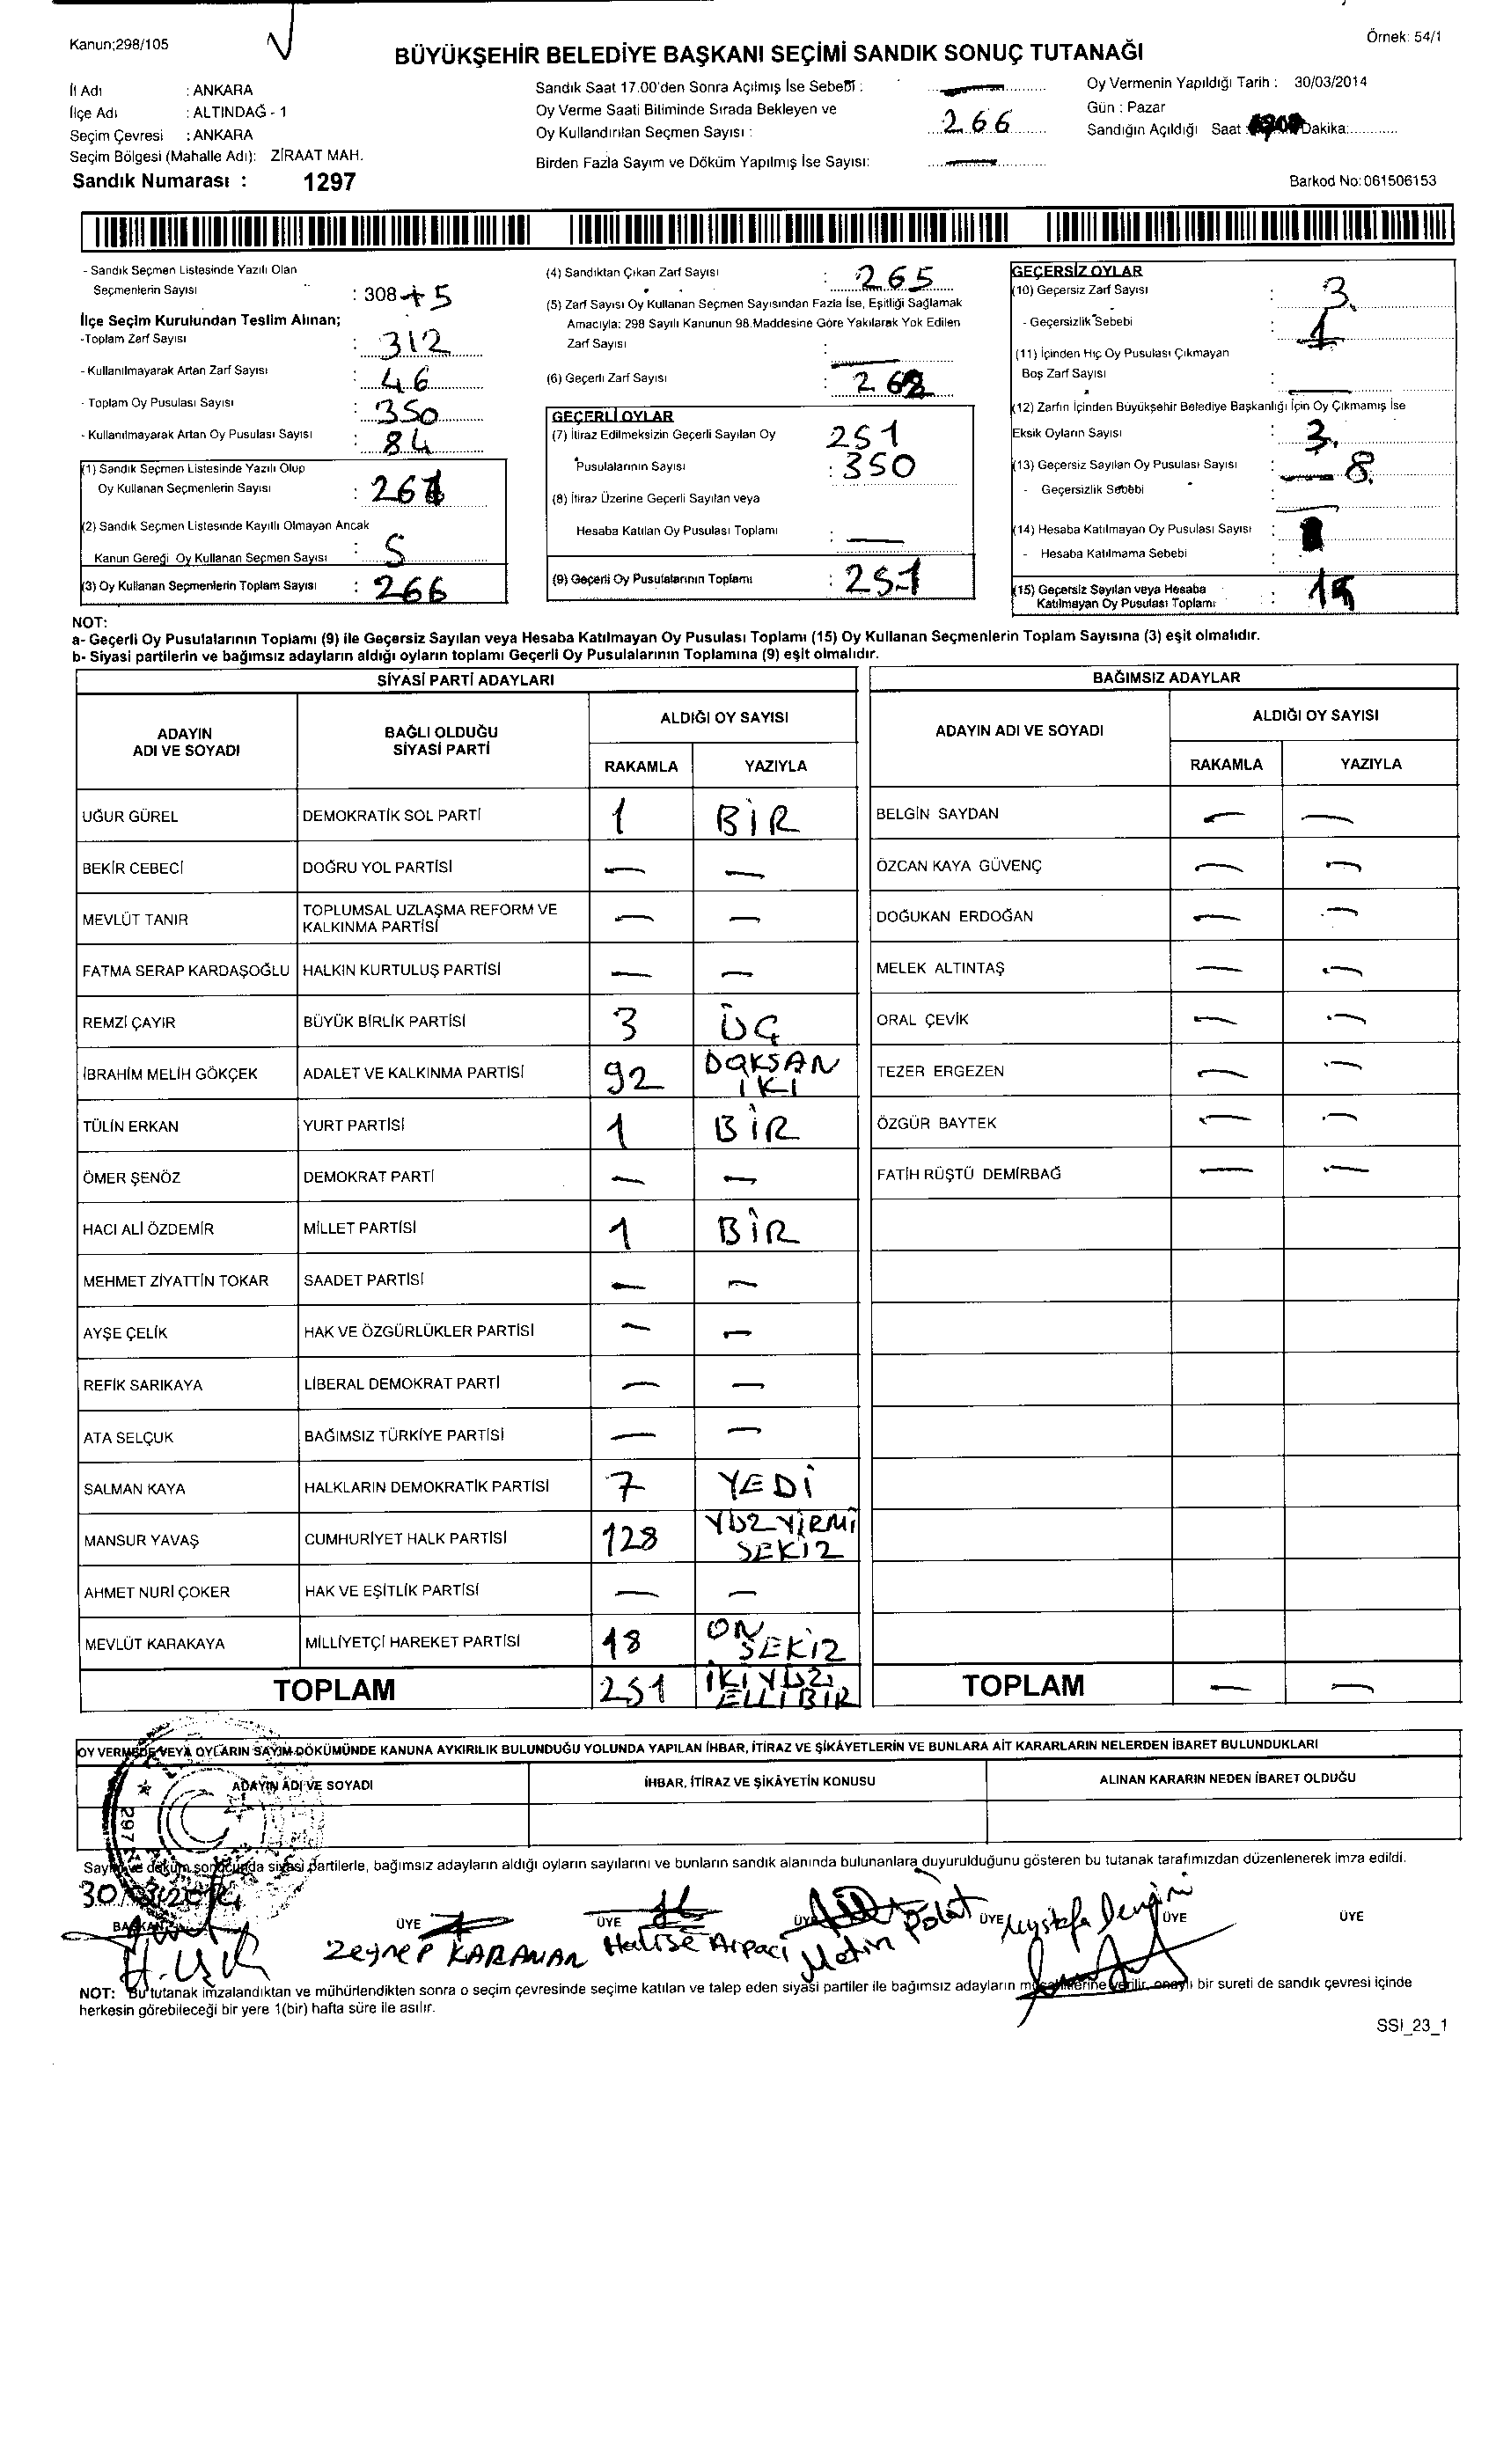 Kanun;298/105
Örnek: 54/1
BÜYÜKŞEHİR BELEDİYE BAŞKANI SEÇİMİ SANDIK SONUÇ TUTANAĞI
İl Adı : ANKARA
İlçe Adı : ALTINDAĞ - 1
Seçim Çevresi : ANKARA
Seçim Bölgesi (Mahalle Adı): ZİRAAT MAH.
Sandık Numarası : 1297
Sandık Saat 17.00'den Sonra Açılmış İse Sebebi :
Oy Verme Saati Bitiminde Sırada Bekleyen ve
Oy Kullandırılan Seçmen Sayısı : 266
Birden Fazla Sayım ve Döküm Yapılmış İse Sayısı:
Oy Vermenin Yapıldığı Tarih : 30/03/2014
Gün : Pazar
Sandığın Açıldığı Saat Dakika:
Barkod No:061506153
- Sandık Seçmen Listesinde Yazılı Olan
Seçmenlerin Sayısı : 308 + 5
İlçe Seçim Kurulundan Teslim Alınan;
-Toplam Zarf Sayısı : 312
- Kullanılmayarak Artan Zarf Sayısı : 46
- Toplam Oy Pusulası Sayısı : 350
- Kullanılmayarak Artan Oy Pusulası Sayısı : 84
(1) Sandık Seçmen Listesinde Yazılı Olup
Oy Kullanan Seçmenlerin Sayısı : 261
(2) Sandık Seçmen Listesinde Kayıtlı Olmayan Ancak
Kanun Gereği Oy Kullanan Seçmen Sayısı : 5
(3) Oy Kullanan Seçmenlerin Toplam Sayısı : 266
(4) Sandıktan Çıkan Zarf Sayısı : 265
(5) Zarf Sayısı Oy Kullanan Seçmen Sayısından Fazla İse, Eşitliği Sağlamak
Amacıyla: 298 Sayılı Kanunun 98.Maddesine Göre Yakılarak Yok Edilen
Zarf Sayısı : —
(6) Geçerli Zarf Sayısı : 262
GEÇERLİ OYLAR
(7) İtiraz Edilmeksizin Geçerli Sayılan Oy 251
Pusulalarının Sayısı : 350
(8) İtiraz Üzerine Geçerli Sayılan veya
Hesaba Katılan Oy Pusulası Toplamı : —
(9) Geçerli Oy Pusulalarının Toplamı : 251
GEÇERSİZ OYLAR
(10) Geçersiz Zarf Sayısı : 3.
- Geçersizlik Sebebi : 1
(11) İçinden Hiç Oy Pusulası Çıkmayan
Boş Zarf Sayısı : —
(12) Zarfın İçinden Büyükşehir Belediye Başkanlığı İçin Oy Çıkmamış İse
Eksik Oyların Sayısı : 3.
(13) Geçersiz Sayılan Oy Pusulası Sayısı : — 8.
- Geçersizlik Sebebi : —
(14) Hesaba Katılmayan Oy Pusulası Sayısı :
- Hesaba Katılmama Sebebi :
(15) Geçersiz Sayılan veya Hesaba
Katılmayan Oy Pusulası Toplamı : 15
NOT:
a- Geçerli Oy Pusulalarının Toplamı (9) ile Geçersiz Sayılan veya Hesaba Katılmayan Oy Pusulası Toplamı (15) Oy Kullanan Seçmenlerin Toplam Sayısına (3) eşit olmalıdır.
b- Siyasi partilerin ve bağımsız adayların aldığı oyların toplamı Geçerli Oy Pusulalarının Toplamına (9) eşit olmalıdır.
SİYASİ PARTİ ADAYLARI
ADAYIN ADI VE SOYADI BAĞLI OLDUĞU SİYASİ PARTİ ALDIĞI OY SAYISI
RAKAMLA YAZIYLA
UĞUR GÜREL DEMOKRATİK SOL PARTİ 1 BİR
BEKİR CEBECİ DOĞRU YOL PARTİSİ — —
MEVLÜT TANIR TOPLUMSAL UZLAŞMA REFORM VE KALKINMA PARTİSİ — —
FATMA SERAP KARDAŞOĞLU HALKIN KURTULUŞ PARTİSİ — —
REMZİ ÇAYIR BÜYÜK BİRLİK PARTİSİ 3 ÜÇ
İBRAHİM MELİH GÖKÇEK ADALET VE KALKINMA PARTİSİ 92 DOKSAN İKİ
TÜLİN ERKAN YURT PARTİSİ 1 BİR
ÖMER ŞENÖZ DEMOKRAT PARTİ — —
HACI ALİ ÖZDEMİR MİLLET PARTİSİ 1 BİR
MEHMET ZİYATTİN TOKAR SAADET PARTİSİ — —
AYŞE ÇELİK HAK VE ÖZGÜRLÜKLER PARTİSİ — —
REFİK SARIKAYA LİBERAL DEMOKRAT PARTİ — —
ATA SELÇUK BAĞIMSIZ TÜRKİYE PARTİSİ — —
SALMAN KAYA HALKLARIN DEMOKRATİK PARTİSİ 7 YEDİ
MANSUR YAVAŞ CUMHURİYET HALK PARTİSİ 128 YÜZ YİRMİ SEKİZ
AHMET NURİ ÇOKER HAK VE EŞİTLİK PARTİSİ — —
MEVLÜT KARAKAYA MİLLİYETÇİ HAREKET PARTİSİ 18 ON SEKİZ
TOPLAM 251 İKİ YÜZ ELLİ BİR
BAĞIMSIZ ADAYLAR
ADAYIN ADI VE SOYADI ALDIĞI OY SAYISI
RAKAMLA YAZIYLA
BELGİN SAYDAN — —
ÖZCAN KAYA GÜVENÇ — —
DOĞUKAN ERDOĞAN — —
MELEK ALTINTAŞ — —
ORAL ÇEVİK — —
TEZER ERGEZEN — —
ÖZGÜR BAYTEK — —
FATİH RÜŞTÜ DEMİRBAĞ — —
TOPLAM — —
OY VERMEDE VEYA OYLARIN SAYIM DÖKÜMÜNDE KANUNA AYKIRILIK BULUNDUĞU YOLUNDA YAPILAN İHBAR, İTİRAZ VE ŞİKÂYETLERİN VE BUNLARA AİT KARARLARIN NELERDEN İBARET BULUNDUKLARI
ADAYIN ADI VE SOYADI İHBAR, İTİRAZ VE ŞİKÂYETİN KONUSU ALINAN KARARIN NEDEN İBARET OLDUĞU
Sayım ve döküm sonucunda siyasi partilerle, bağımsız adayların aldığı oyların sayılarını ve bunların sandık alanında bulunanlara duyurulduğunu gösteren bu tutanak tarafımızdan düzenlenerek imza edildi.
30/03/2014
BAŞKAN ÜYE ÜYE ÜYE ÜYE ÜYE ÜYE
Zeynep KARAMAN Halise Arpacı Metin Polat Mustafa
NOT: Bu tutanak imzalandıktan ve mühürlendikten sonra o seçim çevresinde seçime katılan ve talep eden siyasi partiler ile bağımsız adayların müşahitlerine verilir, onaylı bir sureti de sandık çevresi içinde
herkesin görebileceği bir yere 1(bir) hafta süre ile asılır.
SSI_23_1